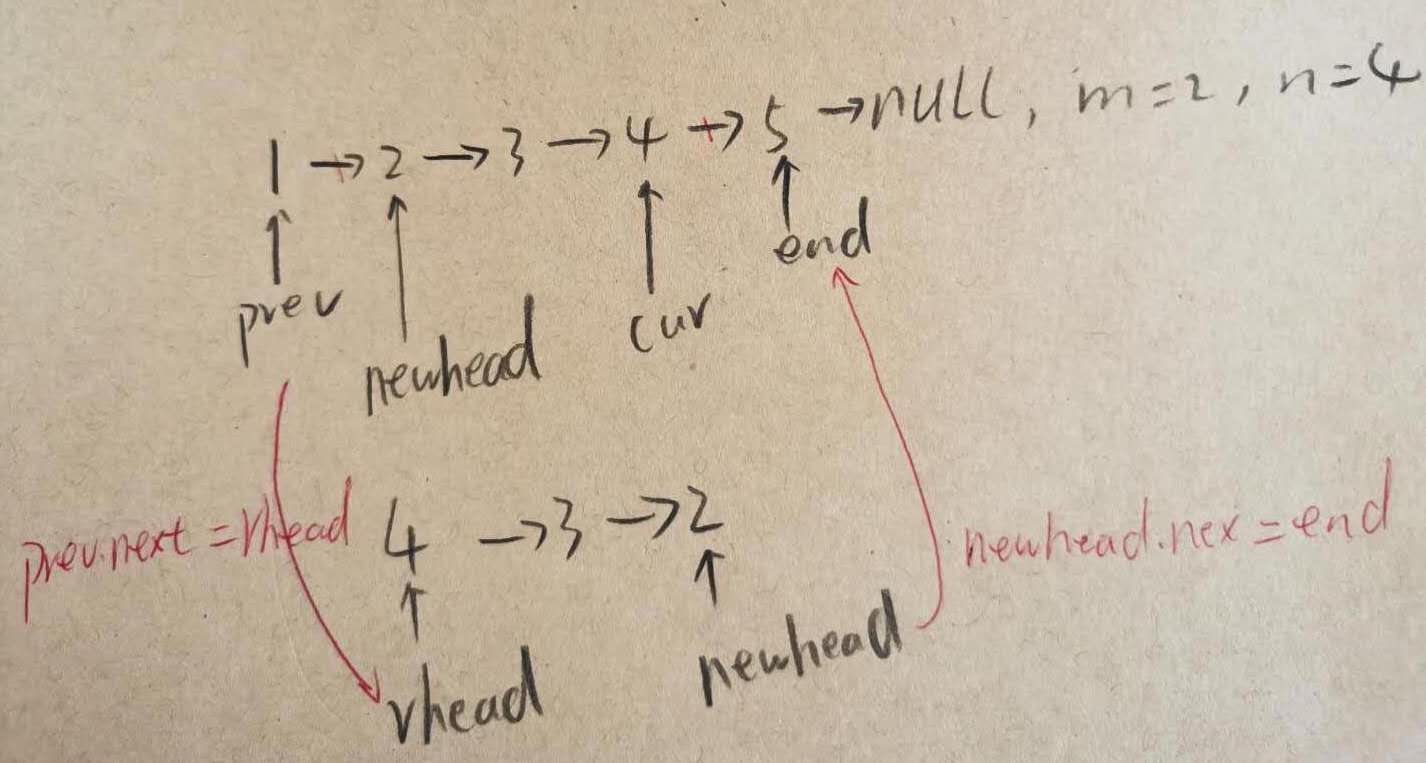 1 → 2 → 3 → 4 → 5 → null, m=2, n=4
prev newhead cur end
prev.next = rhead 4 → 3 → 2 newhead.nex = end
rhead newhead